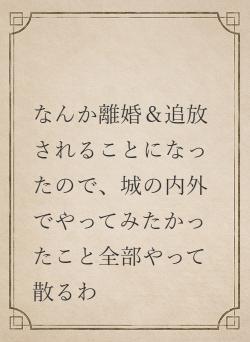 なんか離婚＆追放
されることになっ
たので、城の内外
でやってみたかっ
たこと全部やって
散るわ